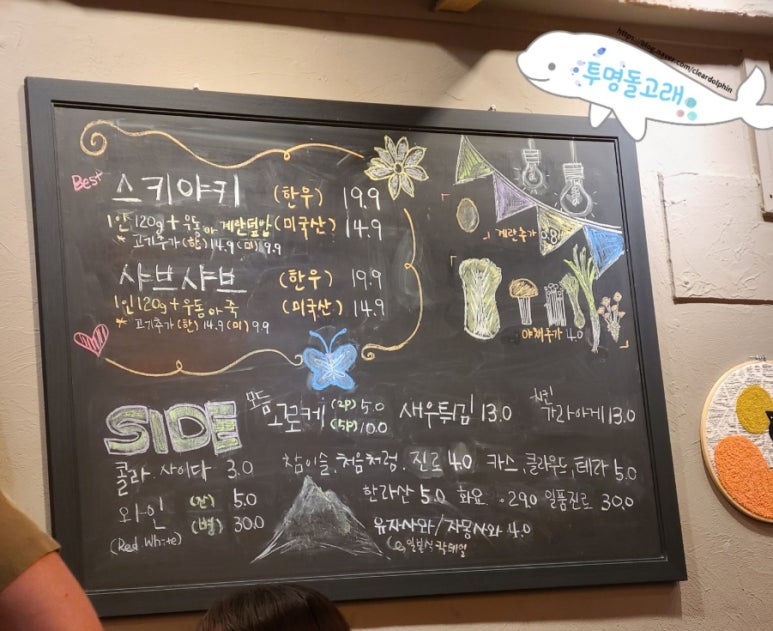 https://blog.naver.com/cleardolphin
투명돌고래
Best 스키야키 (한우) 19.9
1인 120g + 우동 or 계란덮밥 (미국산) 14.9
* 고기추가 (한) 14.9 (미) 9.9
샤브샤브 (한우) 19.9
1인 120g + 우동 or 죽 (미국산) 14.9
* 고기추가 (한) 14.9 (미) 9.9
계란추가
야채추가 4.0
SIDE
모듬 고로케 (2P) 5.0
(5P) 10.0
새우튀김 13.0
치킨 가라아게 13.0
콜라. 사이다 3.0
참이슬. 처음처럼. 진로 4.0 카스. 클라우드 테라 5.0
와인 (잔) 5.0
(병) 30.0
(Red White)
한라산 5.0 화요 29.0 일품진로 30.0
유자사와/자몽사와 4.0
일본식 칵테일